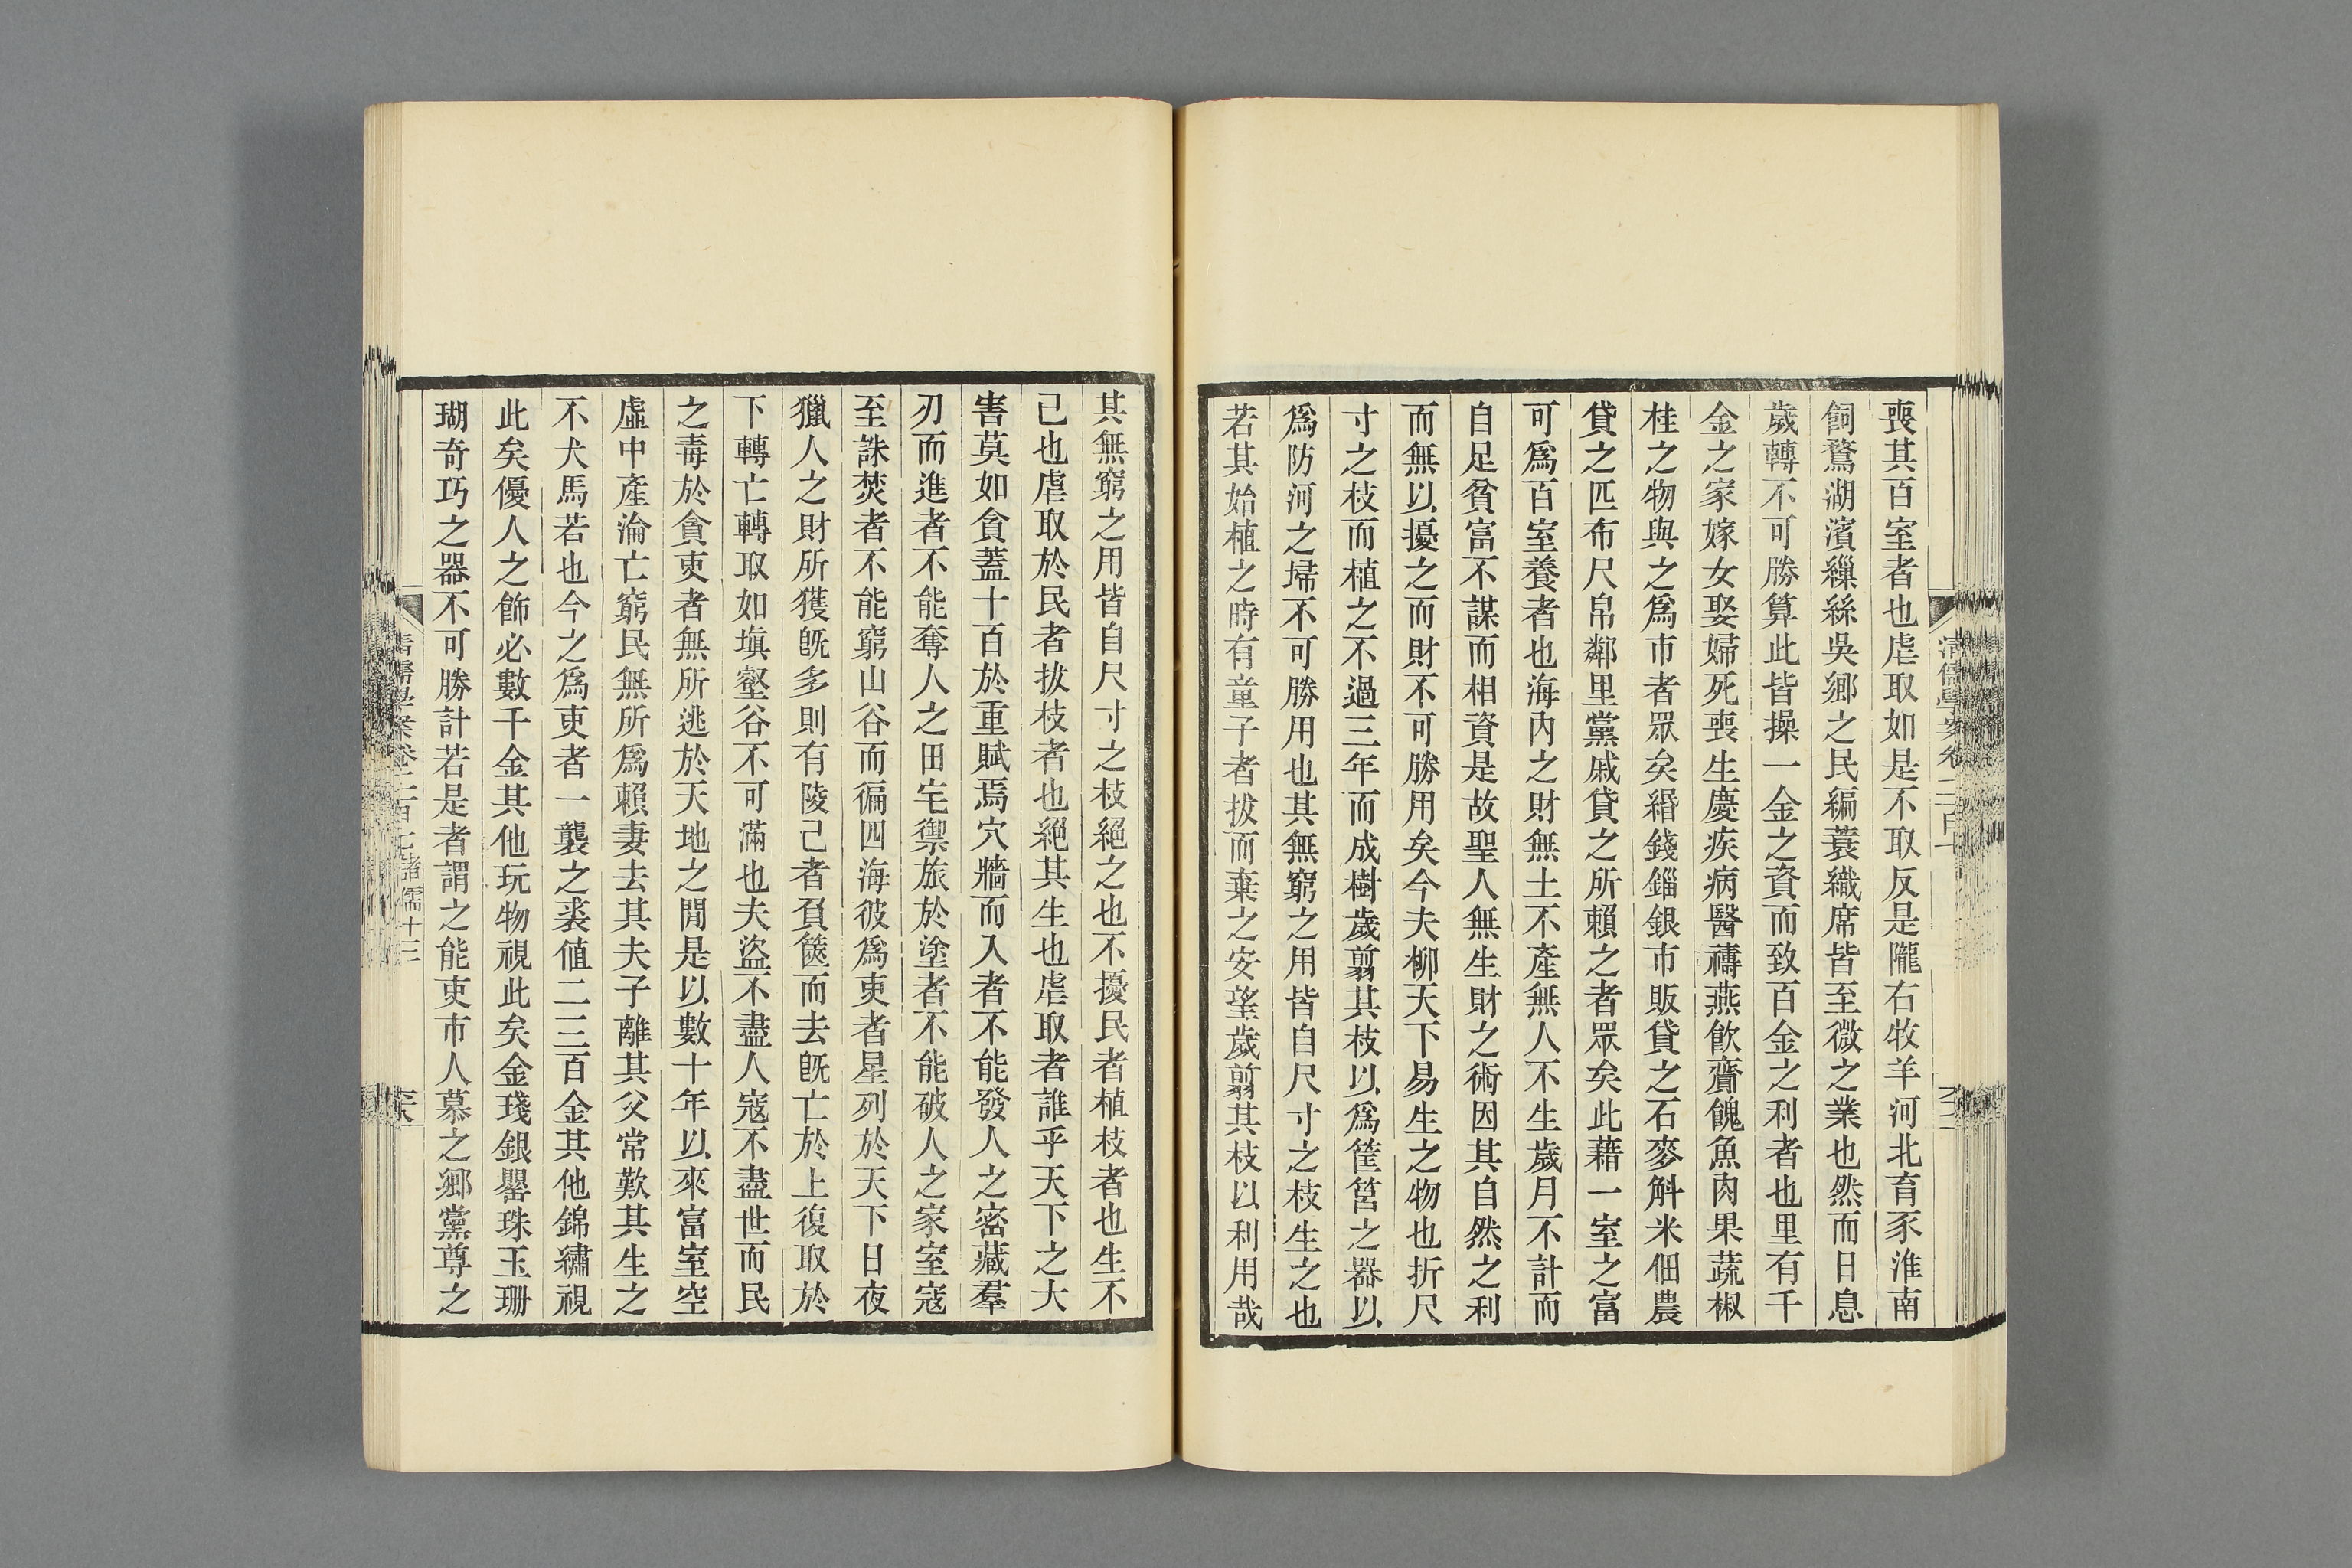 喪其百室者也虐取如是不取反是隴右牧羊河北育豕淮南
飼鶩湖濱繅絲吳鄉之民編蓑織席皆至微之業也然而日息
歲轉不可勝算此皆操一金之資而致百金之利者也里有千
金之家嫁女娶婦死喪生慶疾病醫禱燕飲齎餽魚肉果蔬椒
桂之物與之爲市者眾矣緡錢錙銀市販貸之石麥斛米佃農
貸之匹布尺帛鄰里黨戚貸之所賴之者眾矣此藉一室之富
可爲百室養者也海內之財無土不產無人不生歲月不計而
自足貧富不謀而相資是故聖人無生財之術因其自然之利
而無以擾之而財不可勝用矣今夫柳天下易生之物也折尺
寸之枝而植之不過三年而成樹歲翦其枝以爲筐筥之器以
爲防河之埽不可勝用也其無窮之用皆自尺寸之枝生之也
若其始植之時有童子者拔而棄之安望歲翦其枝以利用哉
清儒學案卷二百七
其無窮之用皆自尺寸之枝絕之也不擾民者植枝者也生不
已也虐取於民者拔枝者也絕其生也虐取者誰乎天下之大
害莫如貪蓋十百於重賦焉穴牆而入者不能發人之密藏羣
刃而進者不能奪人之田宅禦旅於塗者不能破人之家室寇
至誅焚者不能窮山谷而徧四海彼爲吏者星列於天下日夜
獵人之財所獲旣多則有陵己者負篋而去旣亡於上復取於
下轉亡轉取如塡壑谷不可滿也夫盜不盡人寇不盡世而民
之毒於貪吏者無所逃於天地之閒是以數十年以來富室空
虛中產淪亡窮民無所爲賴妻去其夫子離其父常歎其生之
不犬馬若也今之爲吏者一襲之裘値二三百金其他錦繡視
此矣優人之飾必數千金其他玩物視此矣金琖銀罌珠玉珊
瑚奇巧之器不可勝計若是者謂之能吏市人慕之鄉黨尊之
清儒學案卷二百七 諸儒十三